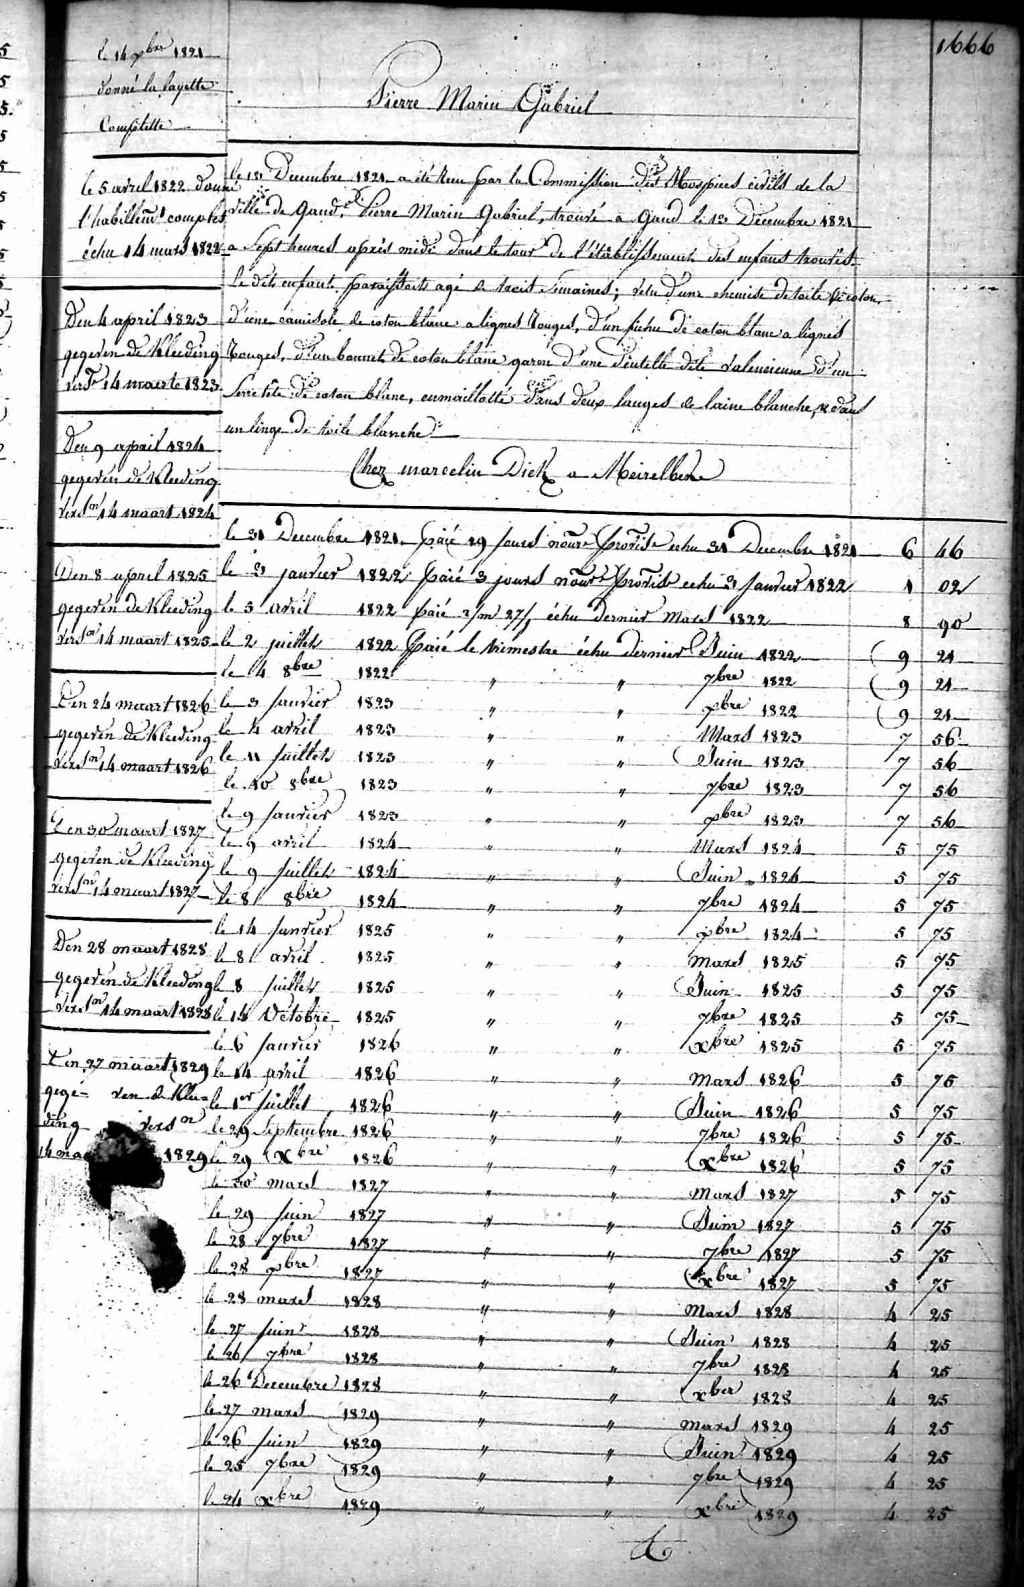 1666
le 14 xbre 1821
donné la layette
Complette
Pierre Marin Gabriel
le 5 avril 1822 donné
l'habillemt complet
échu 14 mars 1822
Den 4 april 1823
gegeven de Kleeding
versn 14 maarte 1823
Den 9 april 1824
gegeven de Kleeding
versn 14 maart 1824
Den 8 april 1825
gegeven de Kleeding
versn 14 maart 1825
Den 24 maart 1826
gegeven de Kleeding
versn 14 maart 1826
Den 30 maart 1827
gegeven de Kleeding
versn 14 maart 1827
Den 28 maart 1828
gegeven de Kleeding
versn 14 maart 1828
Den 27 maart 1829
gege- ven de Klee-
ding versn
14 ma 1829
le 13 Decembre 1821 a été Reçu par la Commission des Hospices civils de la
ville de Gand, Pierre Marin Gabriel, trouvé a Gand le 13 Decembre 1821
a Sept heures après midi dans le tour de l'établissement des enfants trouvés.
Le dit enfant paraissait agé de trois Semaines; vetu d'une chemise de toile de coton,
d'une camisole de coton blanc a lignes Rouges, d'un fichu de coton blanc a lignes
Rouges, d'un bonnet de coton blanc garni d'une Dentelle dite Valencienne d'un
Serre tête de coton blanc, enmaillotté dans deux langes de laine blanche, & dans
un linge de toile blanche
Chez marcelin Dick a Meirelbeke
le 31 Decembre 1821 paié 19 jours nourre provise echu 31 Decembre 1821 6 46
le 3 janvier 1822 paié 3 jours nourre provise echu 3 Janvier 1822 1 02
le 5 avril 1822 paié 2/m 27/j échu dernier Mars 1822 8 90
le 2 juillet 1822 paié le trimestre échu dernier Juin 1822 9 21
le 4 8bre 1822 " " 7bre 1822 9 21
le 3 janvier 1823 " " xbre 1822 9 21
le 4 avril 1823 " " Mars 1823 7 56
le 11 juillet 1823 " " Juin 1823 7 56
le 10 8bre 1823 " " 7bre 1823 7 56
le 9 janvier 1823 " " xbre 1823 7 56
le 9 avril 1824 " " Mars 1824 5 75
le 9 juillet 1824 " " Juin 1824 5 75
le 8 8bre 1824 " " 7bre 1824 5 75
le 14 janvier 1825 " " xbre 1824 5 75
le 8 avril 1825 " " Mars 1825 5 75
le 8 juillet 1825 " " Juin 1825 5 75
le 14 Octobre 1825 " " 7bre 1825 5 75
le 6 janvier 1826 " " xbre 1825 5 75
le 14 avril 1826 " " Mars 1826 5 75
le 1er juillet 1826 " " Juin 1826 5 75
le 29 Septembre 1826 " " 7bre 1826 5 75
le 29 Xbre 1826 " " Xbre 1826 5 75
le 30 mars 1827 " " Mars 1827 5 75
le 29 juin 1827 " " Juin 1827 5 75
le 28 7bre 1827 " " 7bre 1827 5 75
le 28 xbre 1827 " " Xbre 1827 5 75
le 28 mars 1828 " " Mars 1828 4 25
le 27 juin 1828 " " Juin 1828 4 25
le 26 7bre 1828 " " 7bre 1828 4 25
le 26 Decembre 1828 " " xber 1828 4 25
le 27 mars 1829 " " mars 1829 4 25
le 26 juin 1829 " " Juin 1829 4 25
le 25 7bre 1829 " " 7bre 1829 4 25
le 24 xbre 1829 " " xbre 1829 4 25